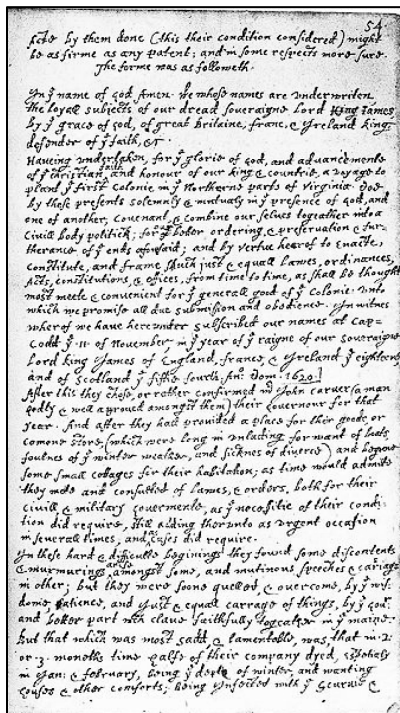 54
facte by them done (this their condition considered) might
be as firme as any patent; and in some respects more sure.
The forme was as followeth.
In yᵉ name of god Amen. We whose names are underwriten,
the loyall subjects of our dread soveraigne Lord King James
by yᵉ grace of god, of great Britaine, franc, & Ireland king,
defender of yᵉ faith, &c
Haveing undertaken, for yᵉ glorie of god, and advancemente
of yᵉ christian faith and honour of our king & countrie, a voyage to
plant yᵉ first colonie in yᵉ Northerne parts of Virginia. Doe
by these presents solemnly & mutualy in yᵉ presence of god, and
one of another, covenant, & combine our selves togeather into a
civill body politick; for our better ordering, & preservation & fur-
therance of yᵉ ends aforesaid; and by vertue hearof to enacte,
constitute, and frame shuch just & equall lawes, ordinances,
Acts, constitutions, & offices, from time to time, as shall be thought
most meete & convenient for yᵉ generall good of yᵉ colonie: unto
which we promise all due submission and obedience. In witnes
wherof we have hereunder subscribed our names at cap=
Codd yᵉ ·11· of November, in yᵉ year of yᵉ raigne of our soveraigne
Lord king James of England, france, & Ireland yᵉ eighteenth
and of Scotland yᵉ fiftie fourth. Anº: Dom. 1620.|
After this they chose, or rather confirmed mʳ John Carver (a man
godly & well aproved amongst them) their Governour for that
year. And after they had provided a place for their goods, or
comone store, (which were long in unlading for want of boats,
foulnes of yᵉ winter weather, and sicknes of diverce) and begune
some small cottages for their habitation; as time would admitte
they mete and consulted of lawes, & orders, both for their
civill & military govermente, as yᵉ necessitie of their condi-
tion did require, still adding therunto as urgent occasion
in severall times, and as cases did require.
In these hard & difficulte beginings they found some discontents
& murmurings arise amongst some, and mutinous speeches & cariags
in other; but they were soone quelled & overcome, by yᵉ wis-
dome, patience, and just & equall carrage of things, by yᵉ Govʳ
and better part wᶜʰ clave faithfully togeather in yᵉ maine.
But that which was most sadd, & lamentable, was that in ·2·
or ·3· moneths time halfe of their company dyed, espetialy
in Jan: & february, being yᵉ depth of winter, and wanting
houses & other comforts; being infected with yᵉ scurvie &